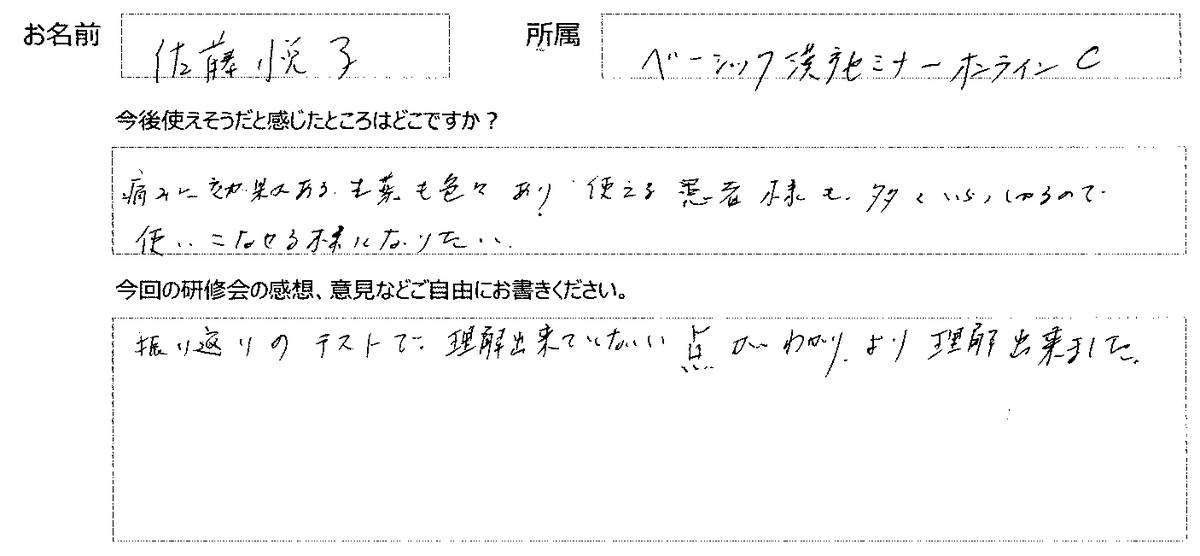 お名前 佐藤悦子 所属 ベーシック漢方セミナーオンラインC
今後使えそうだと感じたところはどこですか？
痛みに効果ある生薬も色々あり 使える患者様も多くいらっしゃるので
使いこなせる様になりたい。
今回の研修会の感想、意見などご自由にお書きください。
振り返りのテストで、理解出来ていない点がわかり、より理解出来ました。